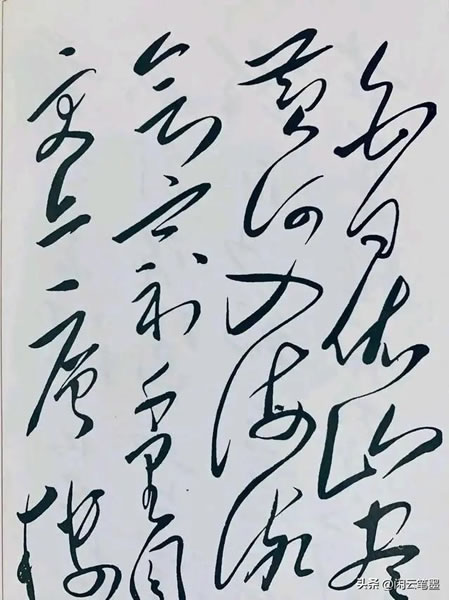 白日依山尽
黄河入海流
欲窮千里目
更上一層楼
头条 @闲云笔墨